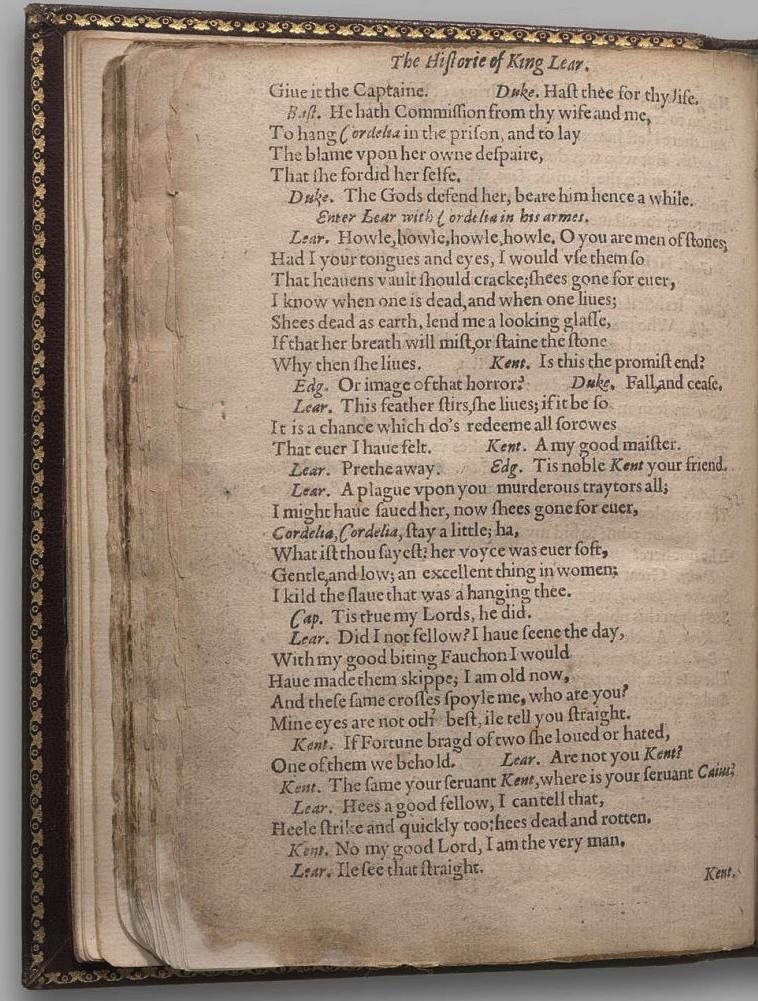 The Hiſtorie of King Lear.
Giue it the Captaine. Duke. Haſt thee for thy life.
Baſt. He hath Commiſſion from thy wife and me,
To hang Cordelia in the priſon, and to lay
The blame vpon her owne deſpaire,
That ſhe fordid her ſelfe.
Duke. The Gods defend her, beare him hence a while.
Enter Lear with Cordelia in his armes.
Lear. Howle, howle, howle, howle, O you are men of ſtones,
Had I your tongues and eyes, I would vſe them ſo
That heauens vault ſhould cracke; ſhees gone for euer,
I know when one is dead, and when one liues;
Shees dead as earth, lend me a looking glaſſe,
If that her breath will miſt, or ſtaine the ſtone
Why then ſhe liues. Kent. Is this the promiſt end?
Edg. Or image of that horror? Duke. Fall, and ceaſe.
Lear. This feather ſtirs, ſhe liues; if it be ſo
It is a chance which do's redeeme all ſorowes
That euer I haue felt. Kent. A my good maiſter.
Lear. Prethe away. Edg. Tis noble Kent your friend.
Lear. A plague vpon you murderous traytors all;
I might haue ſaued her, now ſhees gone for euer,
Cordelia, Cordelia, ſtay a little; ha,
What iſt thou ſayeſt? her voyce was euer ſoft,
Gentle, and low; an excellent thing in women;
I kild the ſlaue that was a hanging thee.
Cap. Tis true my Lords, he did.
Lear. Did I not fellow? I haue ſeene the day,
With my good biting Fauchon I would
Haue made them skippe; I am old now,
And theſe ſame croſſes ſpoyle me, who are you?
Mine eyes are not oth' beſt, ile tell you ſtraight.
Kent. If Fortune bragd of two ſhe loued or hated,
One of them we behold. Lear. Are not you Kent?
Kent. The ſame your ſeruant Kent, where is your ſeruant Caius?
Lear. Hees a good fellow, I can tell that,
Heele ſtrike and quickly too: hees dead and rotten.
Kent. No my good Lord, I am the very man.
Lear. Ile ſee that ſtraight.
Kent.